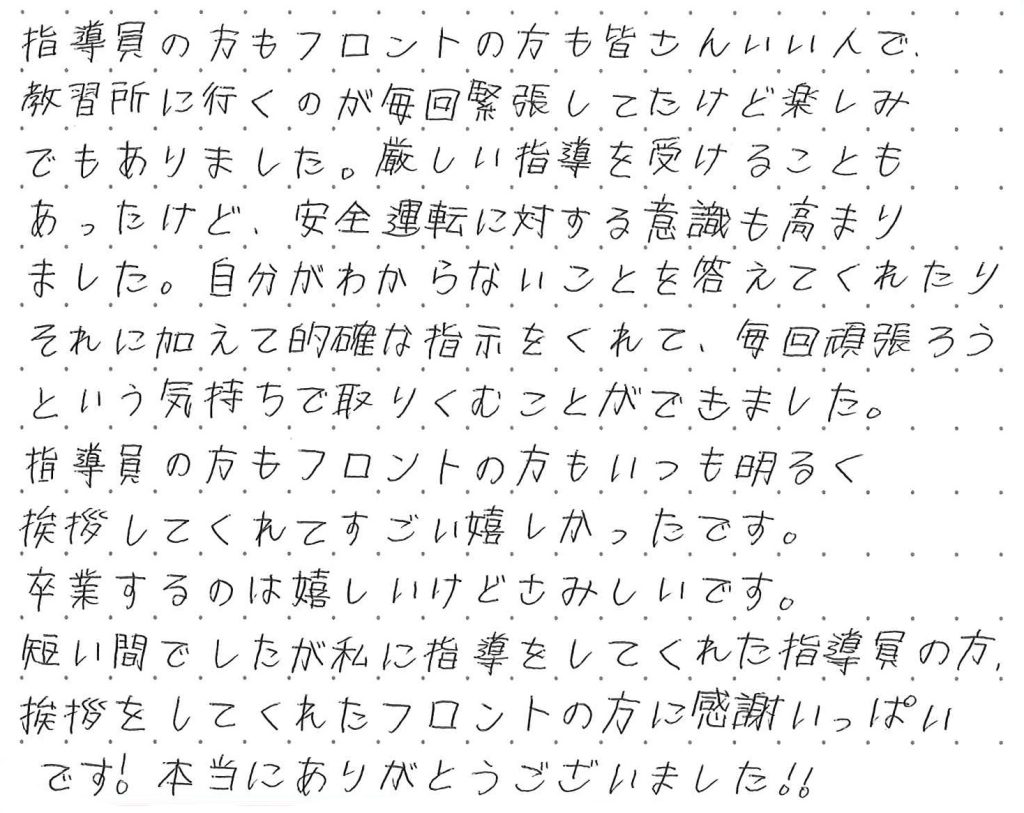 指導員の方もフロントの方も皆さんいい人で、
教習所に行くのが毎回緊張してたけど楽しみ
でもありました。厳しい指導を受けることも
あったけど、安全運転に対する意識も高まり
ました。自分がわからないことを答えてくれたり
それに加えて的確な指示をくれて、毎回頑張ろう
という気持ちで取りくむことができました。
指導員の方もフロントの方もいつも明るく
挨拶してくれてすごい嬉しかったです。
卒業するのは嬉しいけどさみしいです。
短い間でしたが私に指導をしてくれた指導員の方、
挨拶をしてくれたフロントの方に感謝いっぱい
です!本当にありがとうございました!!